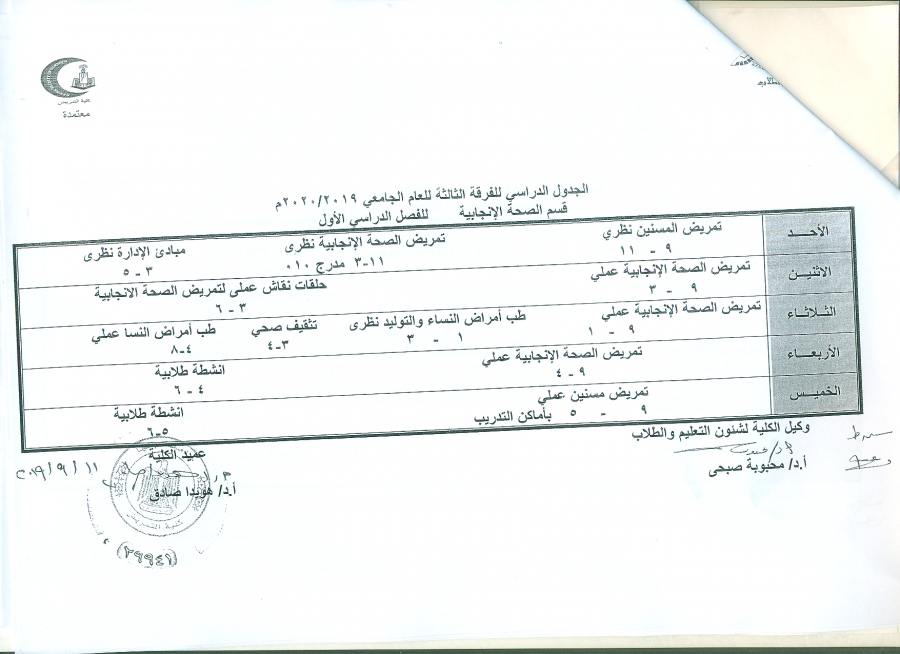 كلية التمريض
معتمدة
الجدول الدراسي للفرقة الثالثة للعام الجامعي ٢٠٢٠/٢٠١٩م
قسم الصحة الإنجابية للفصل الدراسي الأول
الأحد
تمريض المسنين نظري
٩ - ١١
تمريض الصحة الإنجابية نظرى
١١-٣ مدرج ٠١٠
مبادئ الإدارة نظرى
٣ - ٥
الاثنين
تمريض الصحة الإنجابية عملي
٩ - ٣
حلقات نقاش عملى لتمريض الصحة الانجابية
٣ - ٦
الثلاثاء
تمريض الصحة الإنجابية عملي
٩ - ١
طب أمراض النساء والتوليد نظرى
١ - ٣
تثقيف صحي
٣-٤
طب أمراض النسا عملي
٤-٨
الأربعاء
تمريض الصحة الإنجابية عملي
٩ - ٤
انشطة طلابية
٤ - ٦
الخميس
تمريض مسنين عملي
٩ - ٥ بأماكن التدريب
انشطة طلابية
٥-٦
وكيل الكلية لشئون التعليم والطلاب
أ.د/ محبوبة صبحى
عميد الكلية
أ.د/ هويدا صادق
٢٠١٩/٩/١١
كلية التمريض
(٢٩٩٤١)